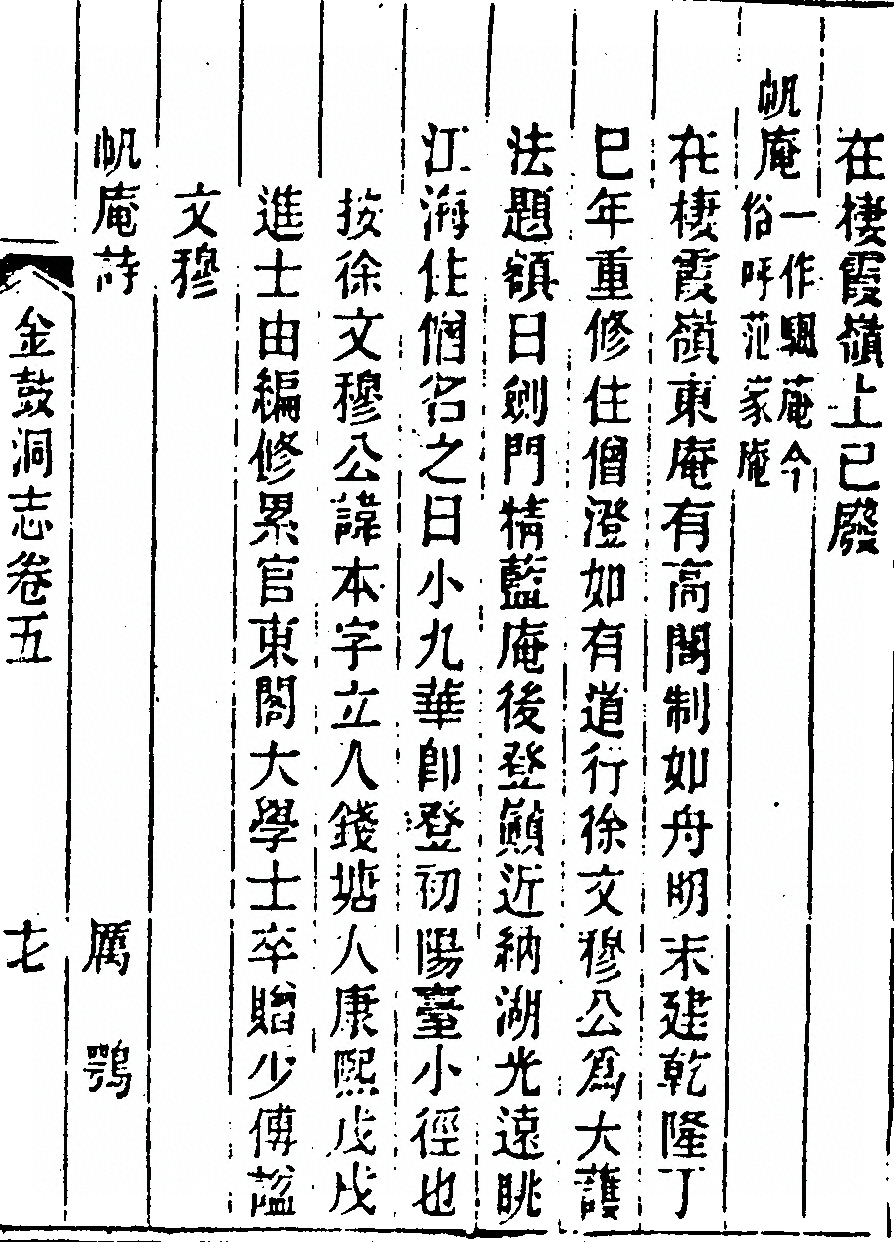 在棲霞嶺上已廢
帆庵一作颿菴今
俗呼范家庵
在棲霞嶺東庵有高閣制如舟明末建乾隆丁
巳年重修住僧澄如有道行徐文穆公為大護
法題額曰劍門精藍庵後登巔近納湖光遠眺
江海住僧名之曰小九華卽登初陽臺小徑也
按徐文穆公諱本字立人錢塘人康熙戊戌
進士由編修累官東閣大學士卒贈少傅諡
文穆
帆庵詩 厲鶚
金鼓洞志卷五